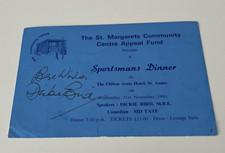 The St. Margarets Community
Centre Appeal Fund
Sportsmans Dinner
The Clifton Arms Hotel, St. Annes
Best Wishes
Dickie Bird
Wednesday, 21st November, 1990
Speakers : DICKIE BIRD, M.B.E.
Comedian : SID TATE
Dinner 7-30 p.m. TICKETS £15-00 Dress : Lounge Suits